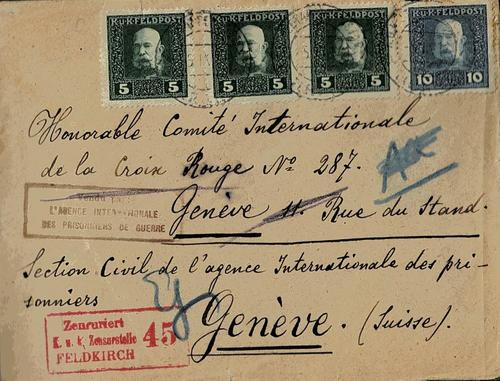 K.u.K.FELDPOST K.u.K.FELDPOST K.u.K.FELDPOST K.u.K.FELDPOST
5 5 5 5 5 5 10 10
Honorable Comité Internationale
de la Croix Rouge Nº 287.
Vendu par
L'AGENCE INTERNATIONALE
DES PRISONNIERS DE GUERRE
Genève 11. Rue du Stand.
Section Civil de l'agence Internationale des pri-
sonniers
Genève. (Suisse).
Zensuriert
K. u. k. Zensurstelle 45
FELDKIRCH